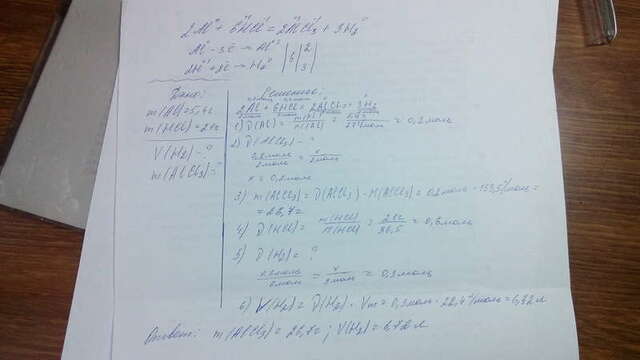 2Al⁰ + 6HCl = 2AlCl₃ + 3H₂⁰
Al⁰ - 3ē → Al⁺³ | 6 | 2
2H⁺ + 2ē → H₂⁰ | 3
Дано:
m(Al) = 5,4г
m(HCl) = 22г
V(H₂) - ?
m(AlCl₃) - ?
Решение:
2Al + 6HCl = 2AlCl₃ + 3H₂
1) ν(Al) = m(Al)/M(Al) = 5,4г/27г/моль = 0,2моль
2) ν(AlCl₃) - ?
0,2моль/2моль = x/2моль
x = 0,2моль
3) m(AlCl₃) = ν(AlCl₃) · M(AlCl₃) = 0,2моль · 133,5г/моль =
= 26,7г
4) ν(HCl) = m(HCl)/M(HCl) = 22г/36,5 = 0,6моль
5) ν(H₂) = ?
0,2моль/2моль = x/3моль = 0,3моль
6) V(H₂) = ν(H₂) · Vm = 0,3моль · 22,4 л/моль = 6,72л
Ответ: m(AlCl₃) = 26,7г ; V(H₂) = 6,72л